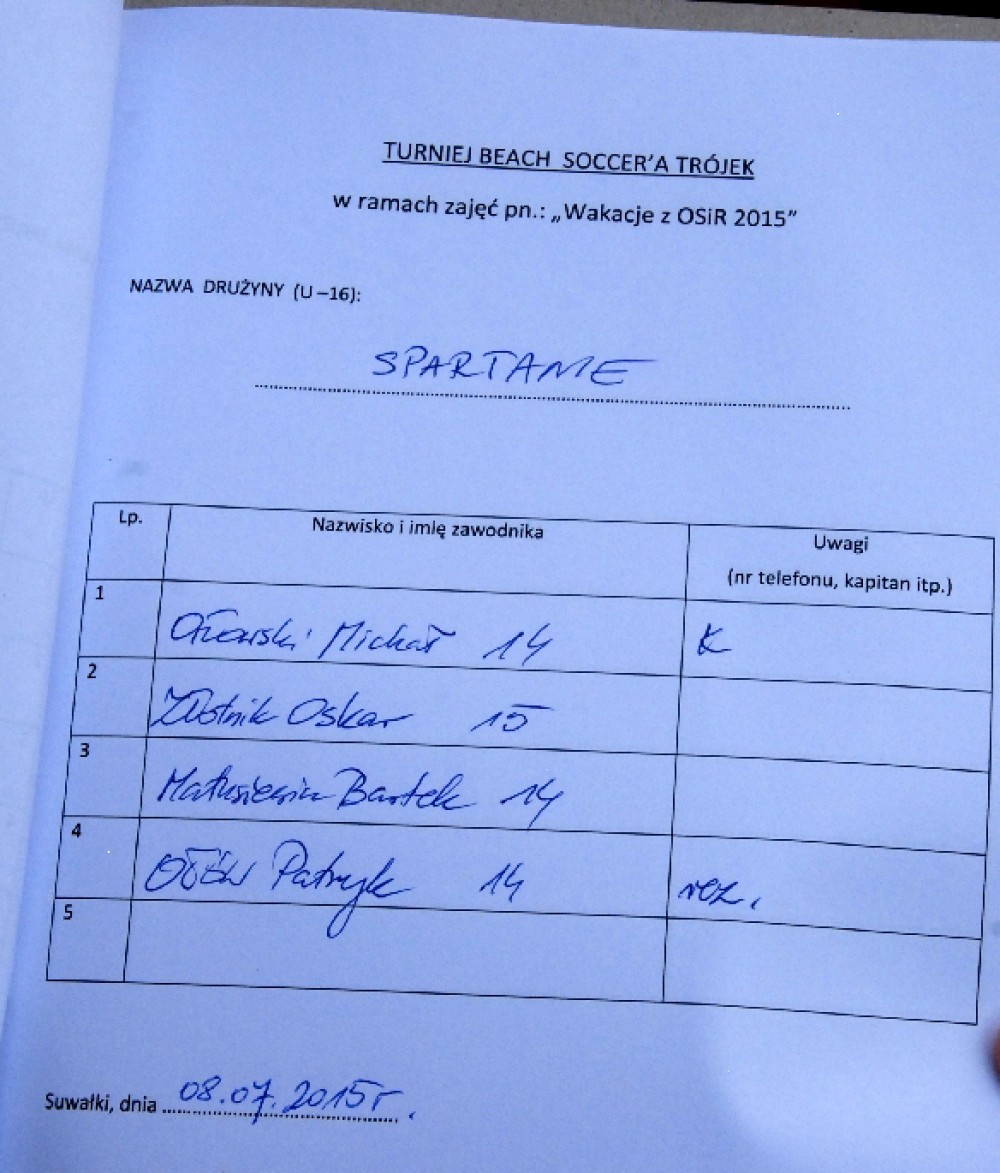 TURNIEJ BEACH SOCCER'A TRÓJEK
w ramach zajęć pn.: „Wakacje z OSiR 2015”
NAZWA DRUŻYNY (U –16):
SPARTANIE
Lp. Nazwisko i imię zawodnika Uwagi
(nr telefonu, kapitan itp.)
1 Michał 14 K
2 Złotnik Oskar 15
3 Bartek 14
4 Ołów Patryk 14 rez.
5
Suwałki, dnia 08.07.2015r.